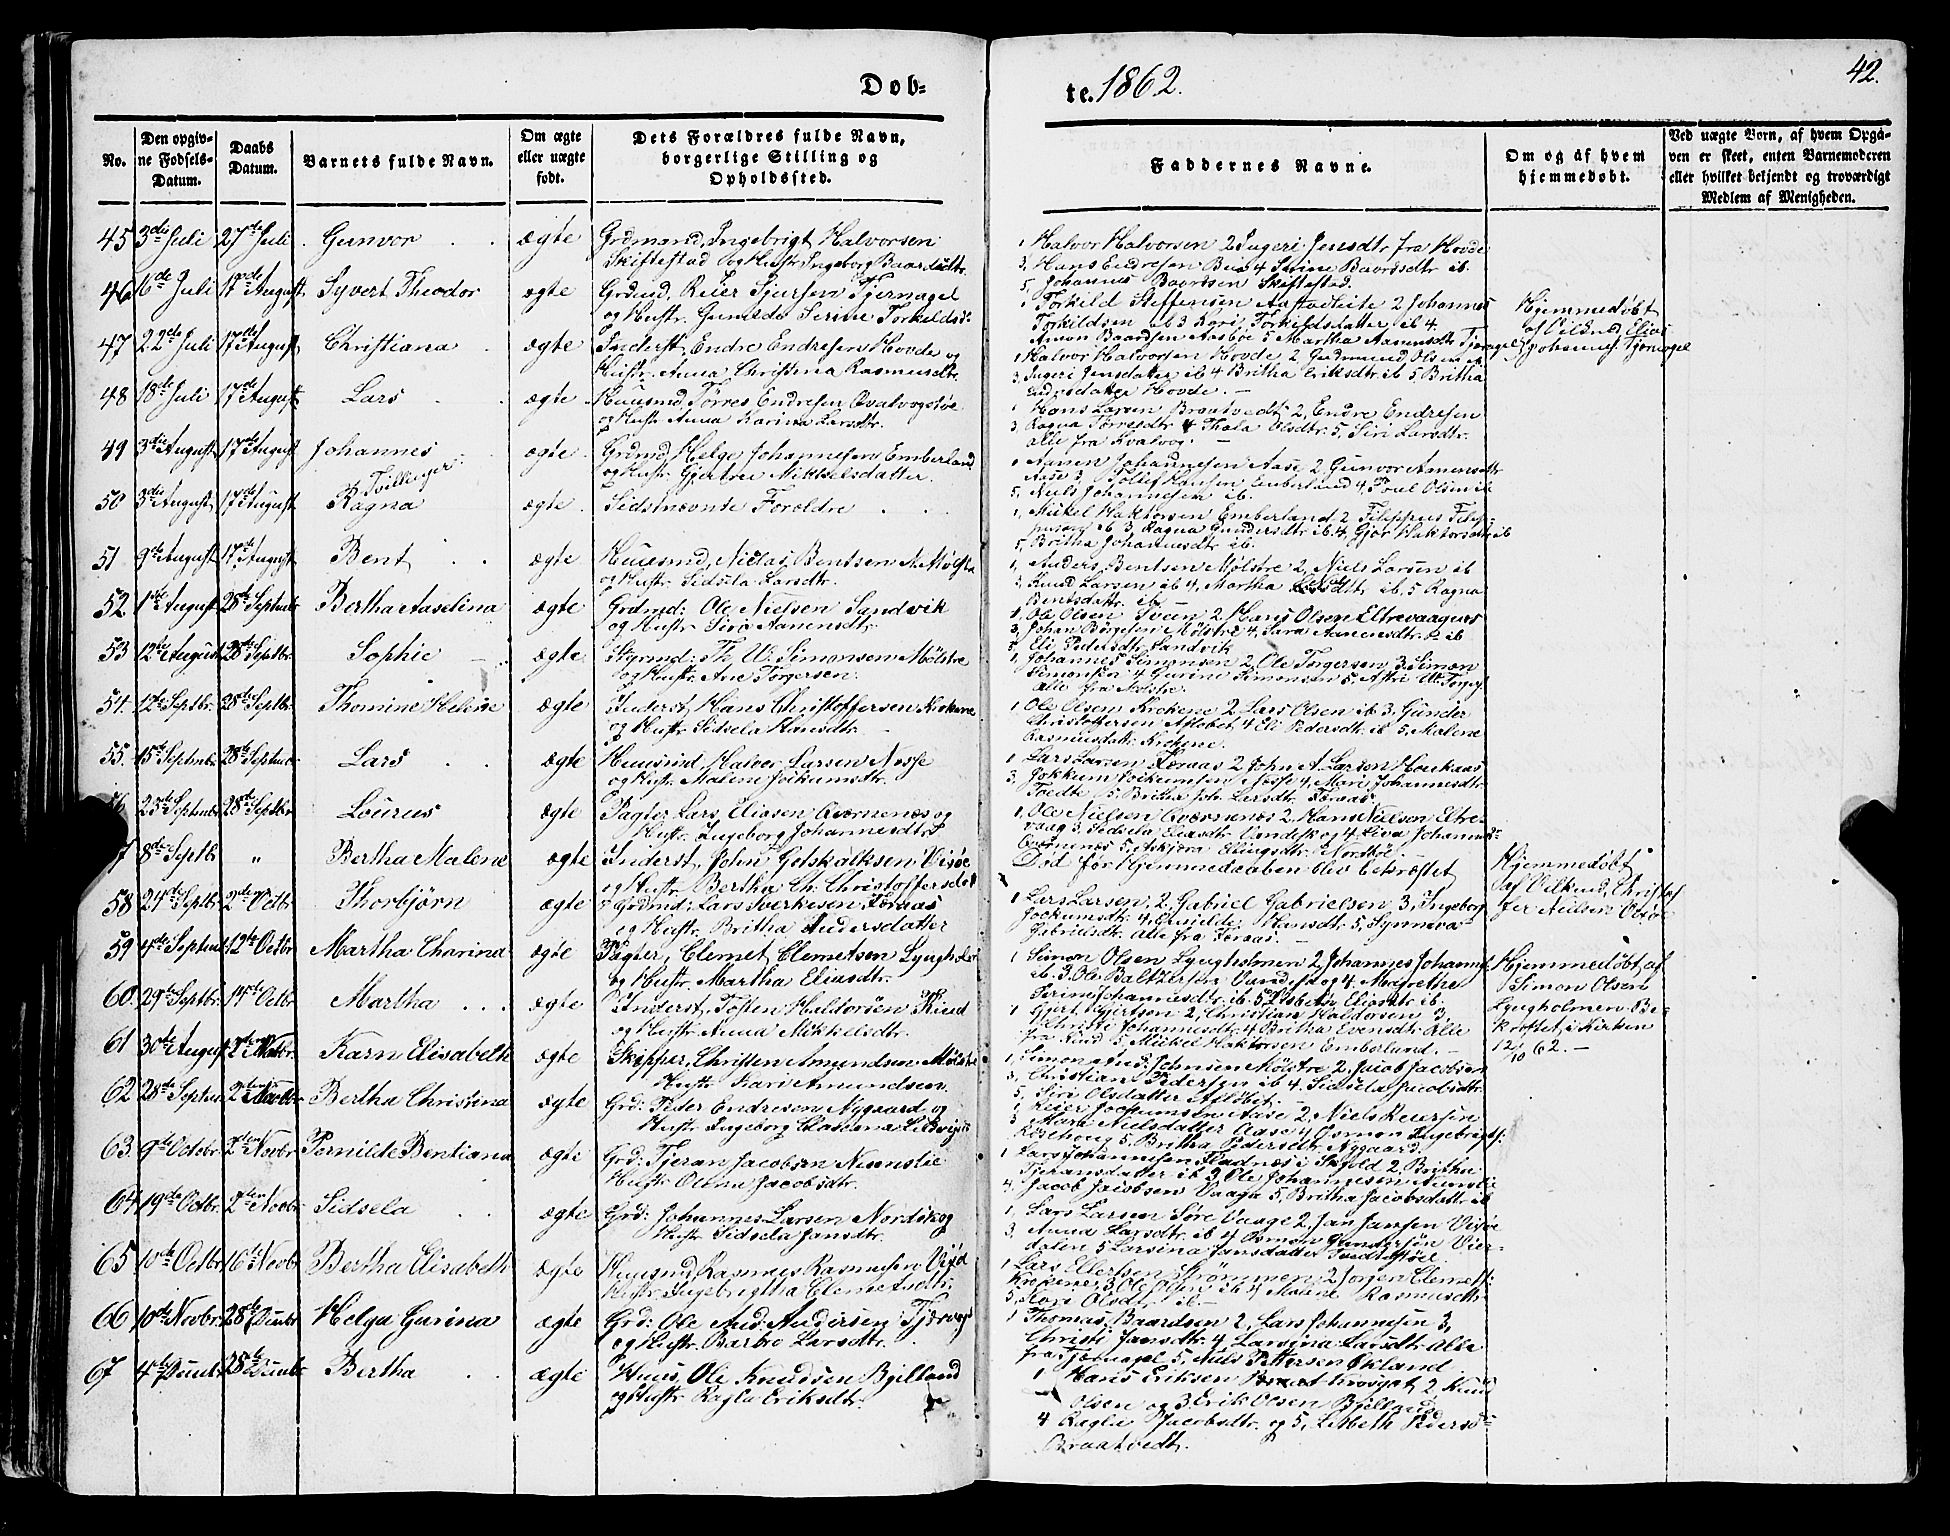 Døb-
te. 1862.
42.
No.
Den opgiv-
ne Fødsels-
Datum.
Daabs
Datum.
Barnets fulde Navn.
Om ægte
eller uægte
født.
Dets Forældres fulde Navn,
borgerlige Stilling og
Opholdssted.
Faddernes Navne.
Om og af hvem
hjemmedøbt.
Ved uægte Børn, af hvem Opgä-
ven er skeet, enten Barnemoderen
eller hvilket bekjendt og troværdigt
Medlem af Menigheden.
45 3die Juli 27de Juli Gunvor ægte Grdmand, Ingebrigt Halvorsen
Skiftestad og Hustr. Ingeborg Baardsdtr.
1, Halvor Halvorsen 2, Ingeri Jensdtr fra Hovde
3, Hans Endresen Bue 4 Serine Baardsdtr ib.
5, Johannes Baardsen Skiftestad.
46 6de Juli 17de August Syvert Theodor ægte Grdmd, Reier Sjursen Tjernagel
og Hustr. Gunilde Serine Torkildsd.
1, Torkild Steffensen Aastadleite 2 Johannes
Torkildsen ib 3 Kari Torkildsdatter ib 4.
Amon Baardsen Aasbøe 5 Martha Aamundsdtr Tjernagel
Hjemmedøbt
af Vilkmd Elias
Johannes. Tjernagel
47 22de Juli 17de August Christiana ægte Inderst Endre Endresen Hovde og
Hustr. Anna Christina Rasmusdtr.
1 Halvor Halvorsen Hovde 2 Gudmund Olsen ib
3, Ingeri Jensdatter ib 4 Britha Eriksdtr. ib 5, Britha
Endresdatter Hovde.
48 18de Juli 17de August Lars ægte Huusmd, Torres Endresen Qvalvogstøe
og Hustr Anna Karina Larsdtr.
1 Hans Larsen Braatvedt 2, Endre Endresen
3, Ragna Torresdtr 4 Thala Olsdtr. 5, Siri Larsdtr.
alle fra Kvalvog.
49 3die August 17de August Johannes ægte Grdmd, Helge Johannesen Emberland
og Hustr. Gjertrei Mikkelsdatter.
Tvillinger
1 Aamen Johannesen Aase 2, Gunvor Aamensdtr
Aase 3, Tollef Hansen Emberland 4, Poul Olsen ib
5, Niels Johannesen ib.
50 3die August 17de August Ragna ægte Sidstnævnte Forældre
1, Mikel Haktorsen Emberland 2 Filippus Filip-
pusen ib 3 Ragna Gundersdtr ib. 4, Gjør Haktorsdtr ib
5, Britha Johannesdtr ib.
51 9de August 17de August Bent ægte Huusmd, Niclas Bentsen N. Mølstre
og Hustr. Sidsela Larsdtr.
1, Anders Bentsen Mølstre 2, Niels Larsen ib
3, Knud Larsen ib 4, Martha Larsdtr ib. 5 Ragna
Bentsdattr. ib.
52 1ste August 28de Septmbr Bertha Aaselina ægte Grdmd: Ole Nielsen Sandvik
og Hustr Siri Aanensdtr.
1, Ole Olsen Sveen 2, Hans Olsen Eltrevaagnes
3, Johan Børgesen Mølstre 4, Sara Aanensdtr. ib
5, Eli Pedersdtr Sandvik
53 12te August 28de Septbr. Sophie ægte Styrmd: Th. W. Simonsen Mølstre
og Hustr. Ane Torgersen.
1, Johannes Simonsen 2, Ole Torgersen, 3. Simon
Simonsen 4 Gurine Simonsen 5, Astri W. Torges.
alle fra Mølstre.
54 12te Septbr. 28de Septbr. Thomine Helene ægte Inderst, Hans Christoffersen Krokene
og Hustr Sidsela Hansdtr.
1, Ole Olsen Krokene 2 Lars Olsen ib 3. Gunder
Christoffersen Afløbet 4 Eli Pedersdtr. ib 5, Malene
Rasmusdatr. Krokene.
55. 15de Septmbr. 28de Septmbr Lars ægte Huusmd, Halvor Larsen Nesse
og Hustr. Malene Joikumsdtr.
1, Lars Larsen Foraas 2 John A. Larsen Houkaas
3, Jokkum Joikumsen Nesse 4, Mari Johannesdtr.
Tvedte 5, Britha Joh. Larsdtr. Foraas
56 23de Septmbr. 28de Septbr Lourus ægte Pagter Lars Eliasen Qværnenæs og
Hustr. Ingeborg Johannesdtr
1, Ole Nielsen Qværnenæs 2, Hans Nielsen Eltre-
vaag 3, Sidsela Eliasdtr. Vandskog 4 Liva Johannesdtr
Qværnenes 5, Askjera Elingsdtr. Nordbøe.
7 8de Septbr. „ Bertha Malene ægte Inderst, John Gotskalksen Visøe
og Hustr. Bertha Ch. Christoffersdtr
Død før Hjemmedaaben blev bekræftet
Hjemmedøbt
af Vilkmd, Christof
fer Nielsen Visøe
58 24de Septbr 2den Octbr. Thorbjørn ægte Grdmd: Lars Sverkesen Foraas
og Hustr. Britha Andersdatter
1 Lars Larsen, 2, Gabriel Gabrielsen 3, Ingeborg
Jockumsdtr. 4, Hansdtr. 5, Synneva
Gabrielsdtr. Alle fra Foraas.
59 4de Septmbr 12te Octbr. Martha Charina ægte Pagter, Clemet Clemetsen Lyngholm
og Hustr. Martha Eliasdtr.
1 Simon Olsen Lyngholmen 2 Johannes Johannes
ib. 3. Ole Baltzersen Vandskog 4 Magrethe
Serine Johannesdtr ib. 5 Lisbeth Eliasdtr ib.
Hjemmedøbt af
Simon Olsen
Lyngholmen Be-
kræftet i Kirken
12/10 62.
60. 29de Septbr. 14de Octbr. Martha ægte Inderst. Tosten Haldorsen Rind
og Hustr. Anna Mikkelsdtr.
1, Gjert Gjertsen 2, Christian Haldorsen 3,
Christi Johannesdtr 4 Britha Evensdtr. Alle
fra Rind 5, Mickel Haktorsen Emberland.
61 30de August 2den Novbr. Karn Elisabeth ægte Skipper, Christen Amundsen Mølstre
Hustr Kari Amundsen
1, Simon Johnsen Mølstre 2, Jacob Jacobsen
3, Christian Pedersen ib 4. Sidsela Jacobsdtr.
5, Siri Olsdatter Afløbet.
62 28de Septmbr 2den Novbr. Bertha Christina ægte Grd: Peder Endresen Nygaard og
Hustr. Ingeborg
1 Reier Jochumsen Aase 2, Niels Reiersen
3 Mari Nielsdatter Aase 4, Osmon Ingebrigts.
5. Britha Pedersdtr. Nygaard.
63. 9de Octobr. 2den Novbr. Pernilde Bentiana ægte Grd: Tjeran Jacobsen Nonstie
Hustr. Olena Jacobsdtr.
1 Lars Johannesen Fladnæs i Skjold 2 Britha
Tjeransdatter ib 3 Ole Johannesen
4, Jacob Jacobsen Vaaga 5, Britha Jacobsdattr ib
64 19de Octbr. 2den Novbr. Sidsela ægte Grd: Johannes Larsen Nordskog
Hustr. Sidsela Jansdtr.
1, Lars Larsen Søre Vaage 2. Jan Jansen Visøe
3, Anna Larsdtr. ib 4 Osmon Gundersen Vier-
dalen 5 Larsina Jansdatter
65 10de Octbr. 16de Novbr. Bertha Elisabeth ægte Huusmd, Rasmus Rasmusen Visøe
Hustr. Ingebrigtha Clemetsdtr.
1, Lars Ellertsen Strømmen 2 Jorgen Clemets.
Krokene, 3 Ole Olsen ib 4 Malene Rasmusdtr
5, Kari Olsdtr ib
66 10de Novbr. 28de Decmbr Helga Gurina ægte Grd: Ole And: Andersen Tjernagel
og Hustr. Barbro Larsdtr.
1 Thomas Baardsen 2, Lars Johannesen 3,
Christi Jansdtr. 4 Larsina Larsdtr. Alle
fra Tjernagel 5, Niels Pettersen Økland
67 4de Decmbr 28de Decmbr. Bertha ægte Huus, Ole Knudsen Bjelland
og Hustr. Ragla Eriksdtr.
1 Hans Eriksen Krosgat 2 Knud
Olsen og 3 Erik Olsen Bjelland
4 Ragle Jacobsdtr. og 5, Lisbeth Pedersd
Braatvedt.